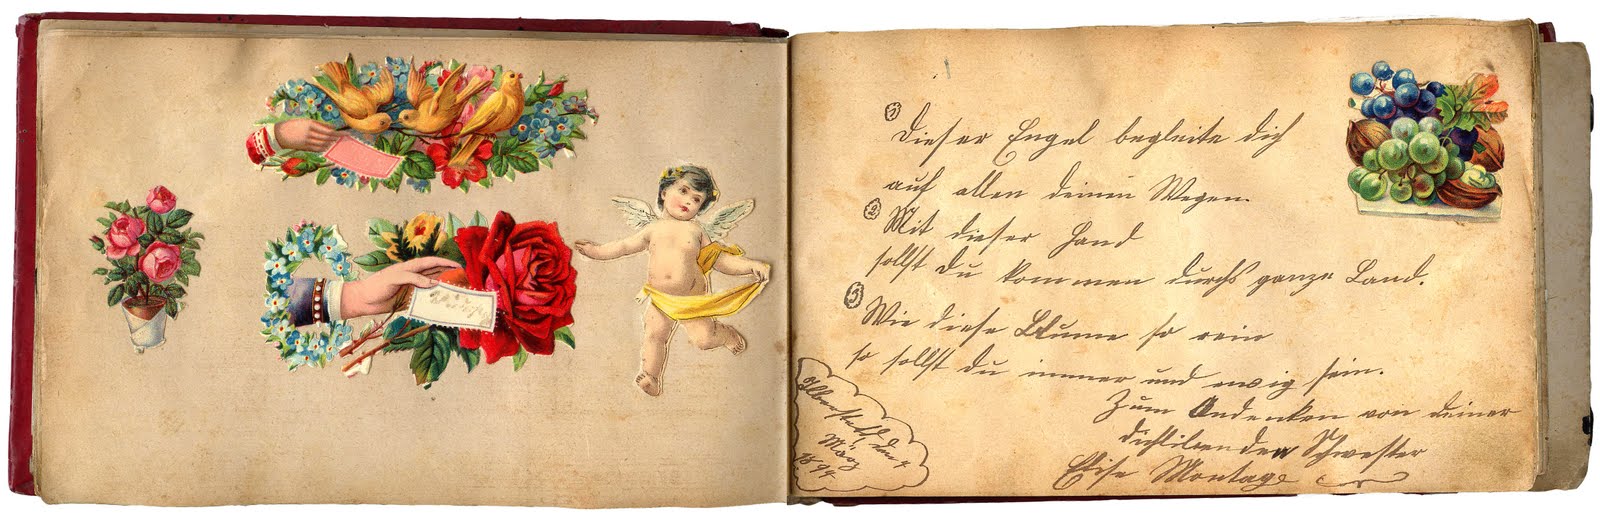 1
Dieser Engel begleite dich
auf allen deinen Wegen.
2
Mit dieser Hand
sollst du kommen durchs ganze Land.
3
Wie diese Blume so rein
so sollst du immer und ewig sein.
Zum Andenken von deiner
dichliebenden Schwester
Elise Montage
den
März
1894